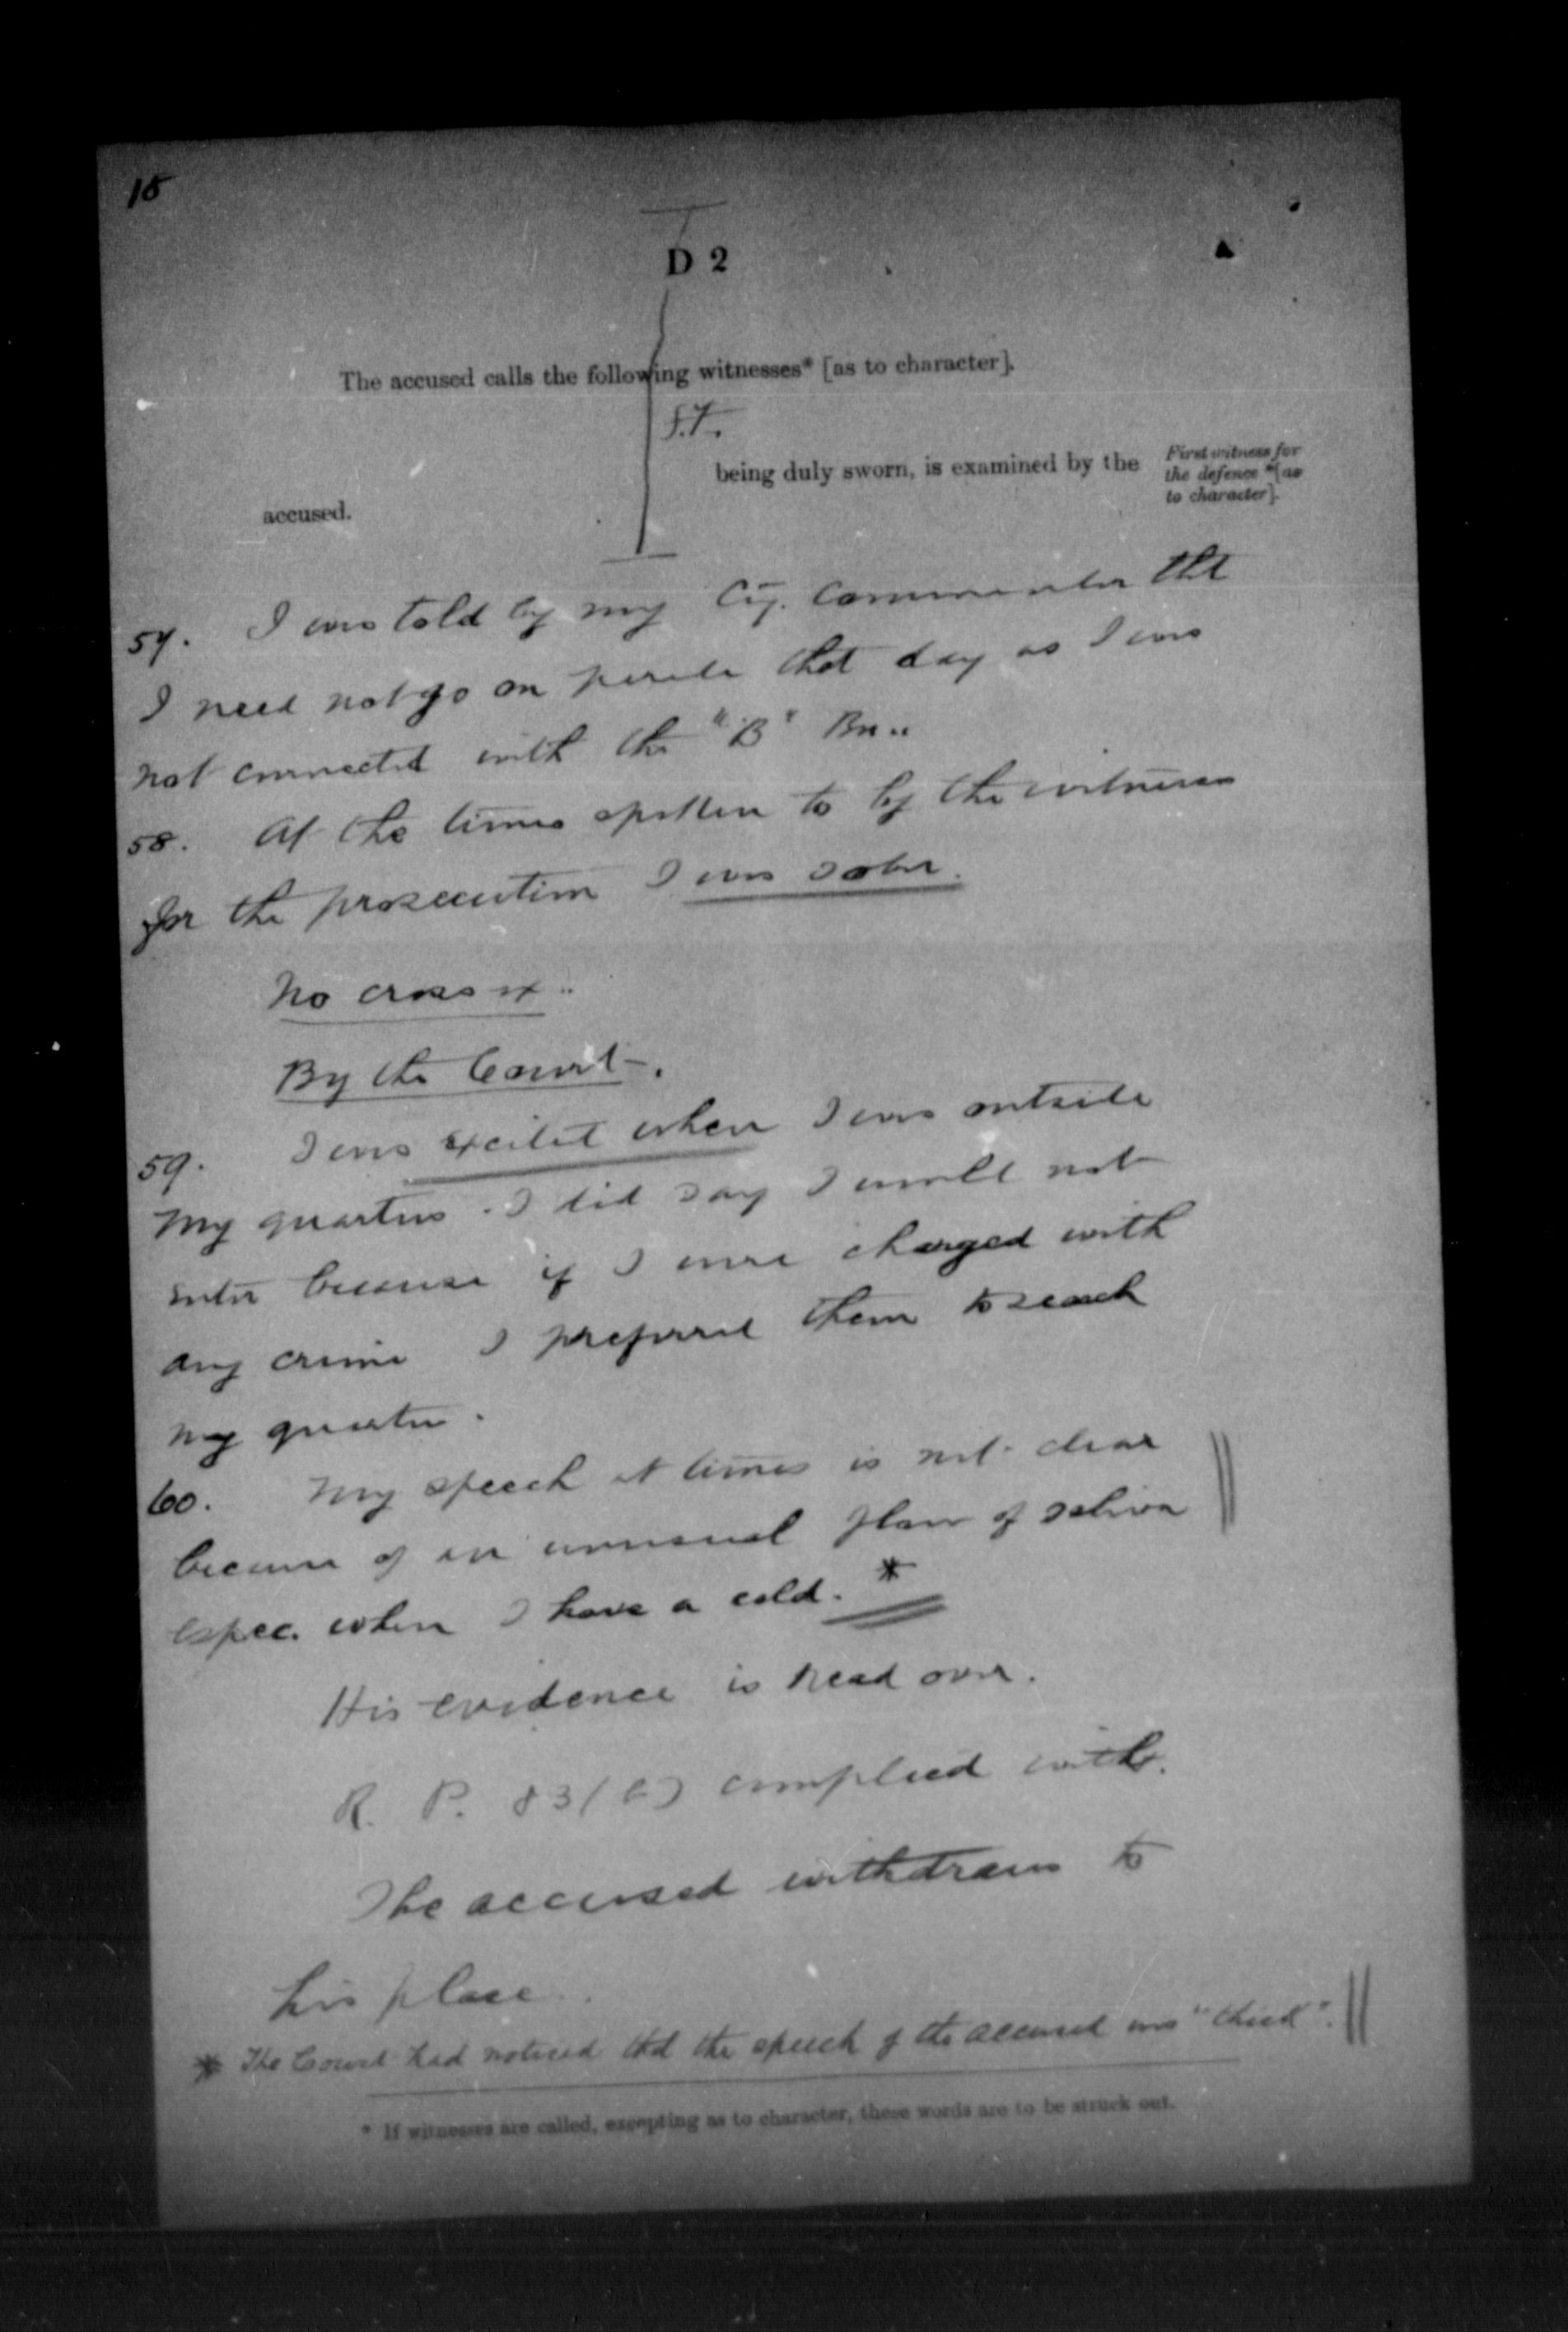 18
D 2
The accused calls the following witnesses* [as to character].
being duly sworn, is examined by the
First witness for
the defence *[as
to character].
accused.
57. I was told by my Coy. Commander tht
I need not go on parade that day as I was
not connected with the "B" Bn..
58. At the times spoken to by the witnesses
for the prosecution I was sober.
No cross ex..
By the Court.
59. I was excited when I was outside
my quarters. I did say I would not
enter because if I were charged with
any crime I preferred them to search
my quarters.
60. My speech at times is not clear
because of an unusual flow of saliva
espec. when I have a cold. *
His evidence is read over.
R. P. 83 (B) complied with.
The accused withdraws to
his place.
* The Court had noticed tht the speech of the accused was "thick".
* If witnesses are called, excepting as to character, these words are to be struck out.